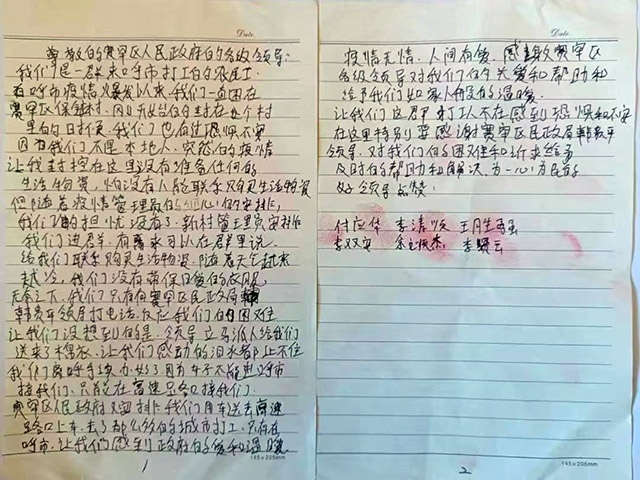 Date
尊敬的赛罕区人民政府的各级领导:
我们是一群来呼市打工的农民工.
在呼市疫情爆发以来.我们一直困在
赛罕区保全村.因
里的日子里.我们也有过恐惧不安
因为我们不是本地人.突然的疫情
让我封控在这里没有准备任何的
生活物资,怕没有人能联系购买生活物资
但随着疫情管理员的细心的安排,
我们的担忧没有了.新村管理员安排
我们进群.有需求可以在群里说.
给我们联系购买生活物资.随着天气越来
越冷,我们没有带保日暖的衣服,
无奈之下.我们只有向赛罕区民政局
韩贵平领导打电话.反应我们的困难
让我们没想到的是.领导立马派人给我们
送来了棉衣.让我们感动的泪水都止不住
我们离呼手续办好了因为车子不能进呼市
接我们.只能在高速路口接我们.
赛罕区人民政府又安排我们用车送去高速
路口上车.去了那么多的城市打工.只有在
呼市.让我们感到政府的爱和温暖.
1
145x205mm
Date
疫情无情.人间有爱.感谢赛罕区
各级领导对我们的关爱和帮助和
给予我们如家人般的温暖.
让我们这群打工人不在感到恐惧和不安
在这里特别要感谢赛罕区民政局韩贵平
领导.对我们的困难和诉求给予
及时的帮助和解决.为一心为民的
好领导点赞:
付应华 李清 王胜
李双安 李
2
145x205mm